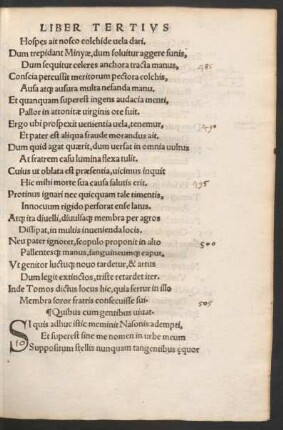 LIBER TERTIVS
Hospes ait nosco colchide uela dari.
Dum trepidant Minyæ, dum soluitur aggere funis,
Dum sequitur celeres anchora tracta manus, 485
Conscia percussit meritorum pectora colchis,
Ausa atq; ausura multa nefanda manu.
Et quanquam superest ingens audacia menti,
Pallor in attonitæ uirginis ore fuit.
Ergo ubi prospexit uenientia uela, tenemur, 490
Et pater est aliqua fraude morandus ait.
Dum quid agat quærit, dum uersat in omnia uultus
At fratrem casu lumina flexa tulit.
Cuius ut oblata est præsentia, uicimus inquit
Hic mihi morte sua causa salutis erit. 495
Protinus ignari nec quicquam tale timentis,
Innocuum rigido perforat ense latus.
Atq; ita diuelli, diuulsaq; membra per agros
Dissipat, in multis inuenienda locis.
Neu pater ignoret, scopulo proponit in alto 500
Pallentesq; manus, sanguineumq; caput,
Vt genitor luctuq; nouo tardetur, & artus
Dum legit extinctos, triste retardet iter.
Inde Tomos dictus locus hic, quia fertur in illo
Membra soror fratris consecuisse sui. 505
¶Quibus cum gentibus uiuat.
SI quis adhuc istic meminit Nasonis adempti,
10 Et superest sine me nomen in urbe meum
Suppositum stellis nunquam tangentibus ęquor